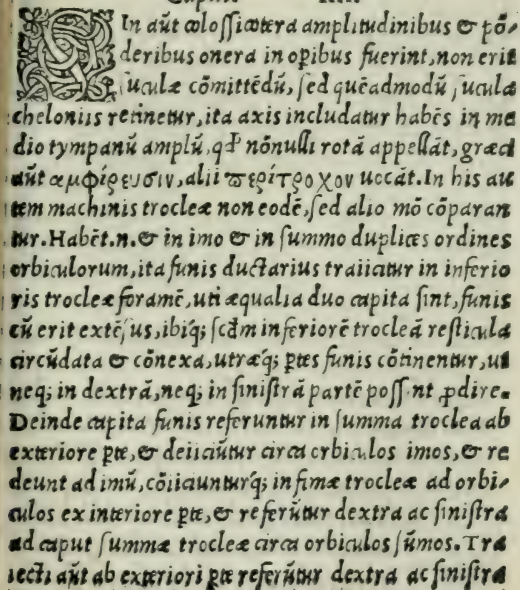 SIn aũt colossicotera amplitudinibus & põ⸗
deribus onera in opibus fuerint, non erit
suculæ cõmittẽdũ, sed quẽadmodũ sucula
cheloniis retinetur, ita axis includatur habẽs in me
dio tympanũ amplũ, qđ nõnulli rotã appellãt, græci
aũt αμφίρευσιν, alii περίτροχον uocãt. In his au
tem machinis trocleæ non eodẽ, sed alio mõ cõparan
tur. Habẽt.n. & in imo & in summo duplices ordines
orbiculorum, ita funis ductarius traiicitur in inferio
ris trocleæ foramẽ, uti æqualia duo capita sint, funis
cũ erit extẽsus, ibiq; scđm inferiorẽ trocleã resticula
circũdata & cõnexa, utræq; ꝑtes funis cõtinentur, ut
neq; in dextrã, neq; in sinistrã partẽ possint ꝓdire.
Deinde capita funis referuntur in summa troclea ab
exteriore ꝑte, & deiiciũtur circa orbiculos imos, & re
deunt ad imũ, cõiiciunturq́; infimæ trocleæ ad orbi⸗
culos ex interiore ꝑte, & referũtur dextra ac sinistra
ad caput summæ trocleæ circa orbiculos sũmos. Tra
iecti aũt ab exteriori ꝑte referũtur dextra ac sinistra